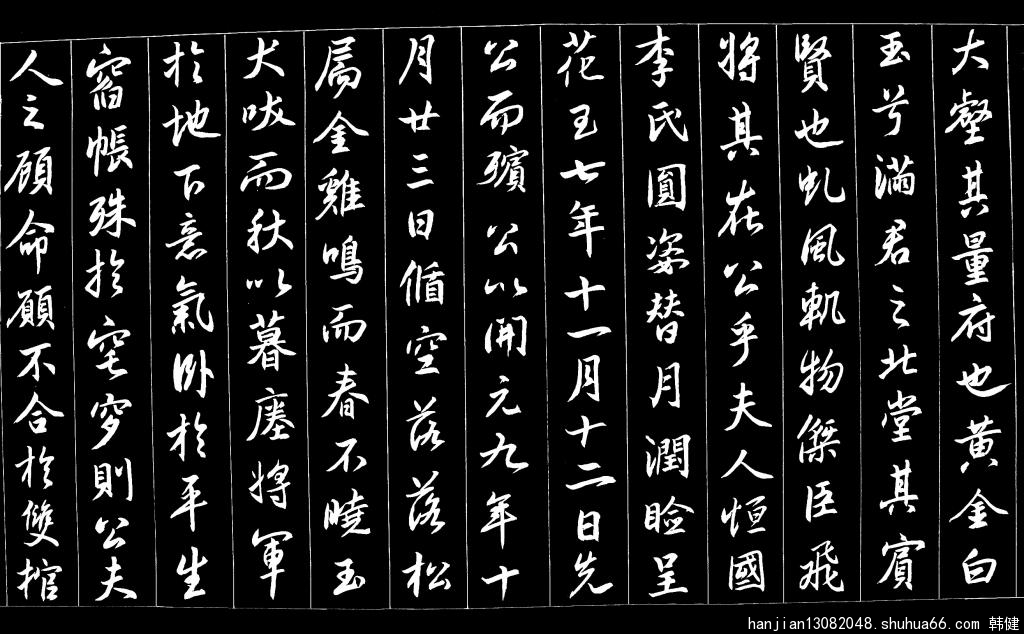 大壑其量府也黃金白
玉兮滿君之北堂其賓
賢也虬風軌物傑臣飛
將其在公乎夫人恒國
李氏圓姿替月潤臉呈
花王七年十一月十二日先
公而殯公以開元九年十
月廿三日偱空落落松
扃金雞鳴而春不曉玉
犬吠而秋以暮塵將軍
於地下意氣臥於平生
窅帳殊於窀穸則公夫
人之顧命願不合於雙棺
hanjian13082048.shuhua66.com 韩健